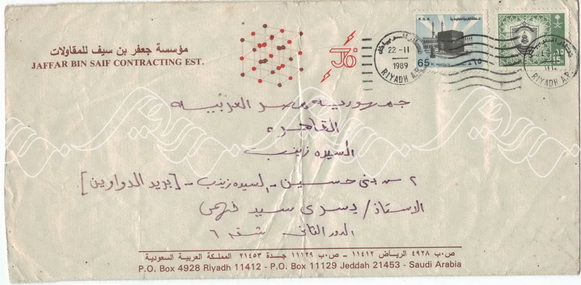 مؤسسة جعفر بن سيف للمقاولات
JAFFAR BIN SAIF CONTRACTING EST.
65
22-11
1989
RIYADH A.P.
RIYADH A.P.
جمهورية مصر العربية
القاهرة
السيدة زينب
٢ س حسين - السيدة زينب - [بريد الدواوين]
الاستاذ / يسرى سيد فهمى
الدور الثانى شقة ٦
ص.ب ٤٩٢٨ الرياض ١١٤١٢ - ص.ب ١١١٢٩ جدة ٢١٤٥٣ المملكة العربية السعودية
P.O. Box 4928 Riyadh 11412 - P.O. Box 11129 Jeddah 21453 - Saudi Arabia